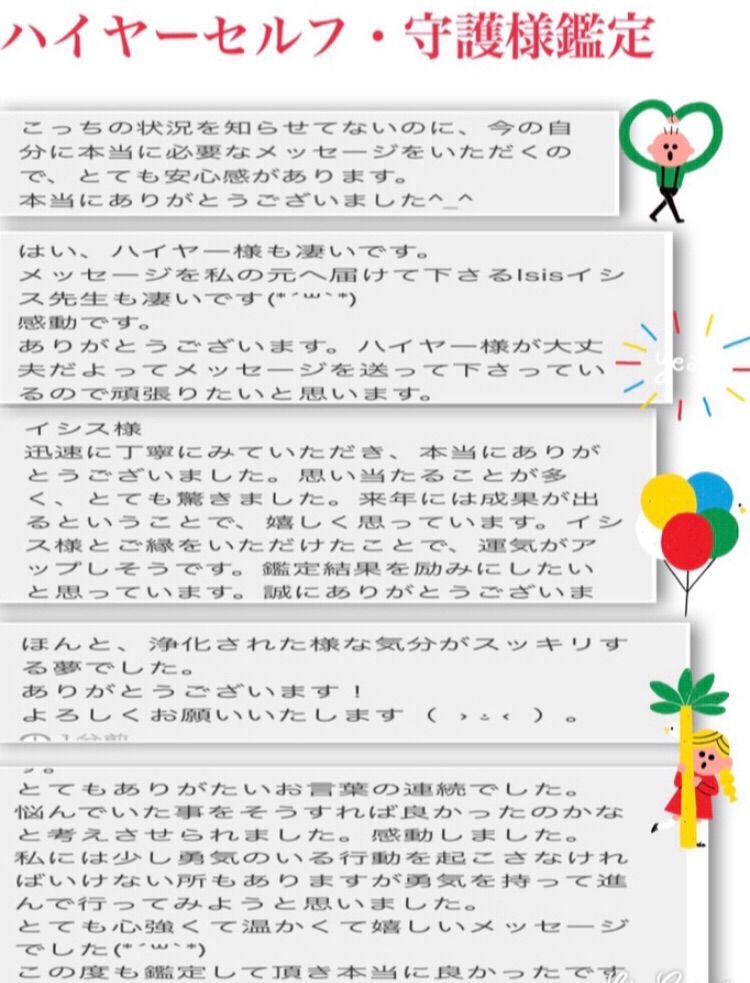 ハイヤーセルフ・守護様鑑定
こっちの状況を知らせてないのに、今の自
分に本当に必要なメッセージをいただくの
で、とても安心感があります。
本当にありがとうございました^_^
はい、ハイヤー様も凄いです。
メッセージを私の元へ届けて下さるIsisイシ
ス先生も凄いです(*´꒳`*)
感動です。
ありがとうございます。ハイヤー様が大丈
夫だよってメッセージを送って下さってい
るので頑張りたいと思います。
yea
イシス様
迅速に丁寧にみていただき、本当にありが
とうございました。思い当たることが多
く、とても驚きました。来年には成果が出
るということで、嬉しく思っています。イシ
ス様とご縁をいただけたことで、運気がア
ップしそうです。鑑定結果を励みにしたい
と思っています。誠にありがとうございま
ほんと、浄化された様な気分がスッキリす
る夢でした。
ありがとうございます！
よろしくお願いいたします（ ›ㅿ‹ ）。
1分前
す。
とてもありがたいお言葉の連続でした。
悩んでいた事をそうすれば良かったのかな
と考えさせられました。感動しました。
私には少し勇気のいる行動を起こさなけれ
ばいけない所もありますが勇気を持って進
んで行ってみようと思いました。
とても心強くて温かくて嬉しいメッセージ
でした(*´꒳`*)
この度も鑑定して頂き本当に良かったです